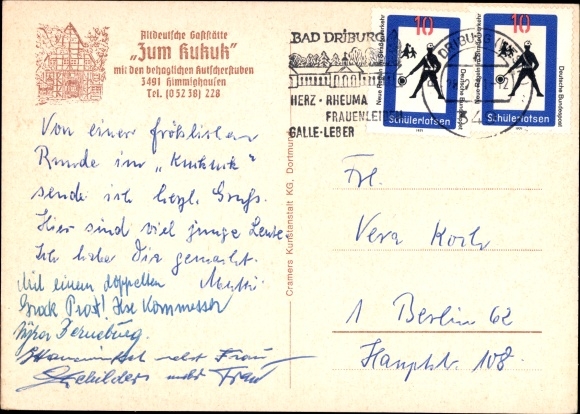 Altdeutsche Gaststätte
„Zum Kukuk"
mit den behaglichen Kutscherstuben
3491 Himmighausen
Tel. (05238) 228
BAD DRIBURG
HERZ · RHEUMA
FRAUENLEIDEN
GALLE · LEBER
DRIBURG
10
10
Neue Regeln im Straßenverkehr
Deutsche Bundespost
Schülerlotsen
Schülerlotsen
Cramers Kunstanstalt KG, Dortmund
Von einer fröhlichen
Runde im „Kuckuck"
sende ich herzl. Grüße.
Hier sind viel junge Leute
Ich habe Dia gemacht.
Mutti
Mit einem doppelten
Prost! Ilse Kommesser
Berneburg.
nebst Frau
Schilders nebst Frau
Frl.
Vera Koch
1 Berlin 62
Hauptstr. 108